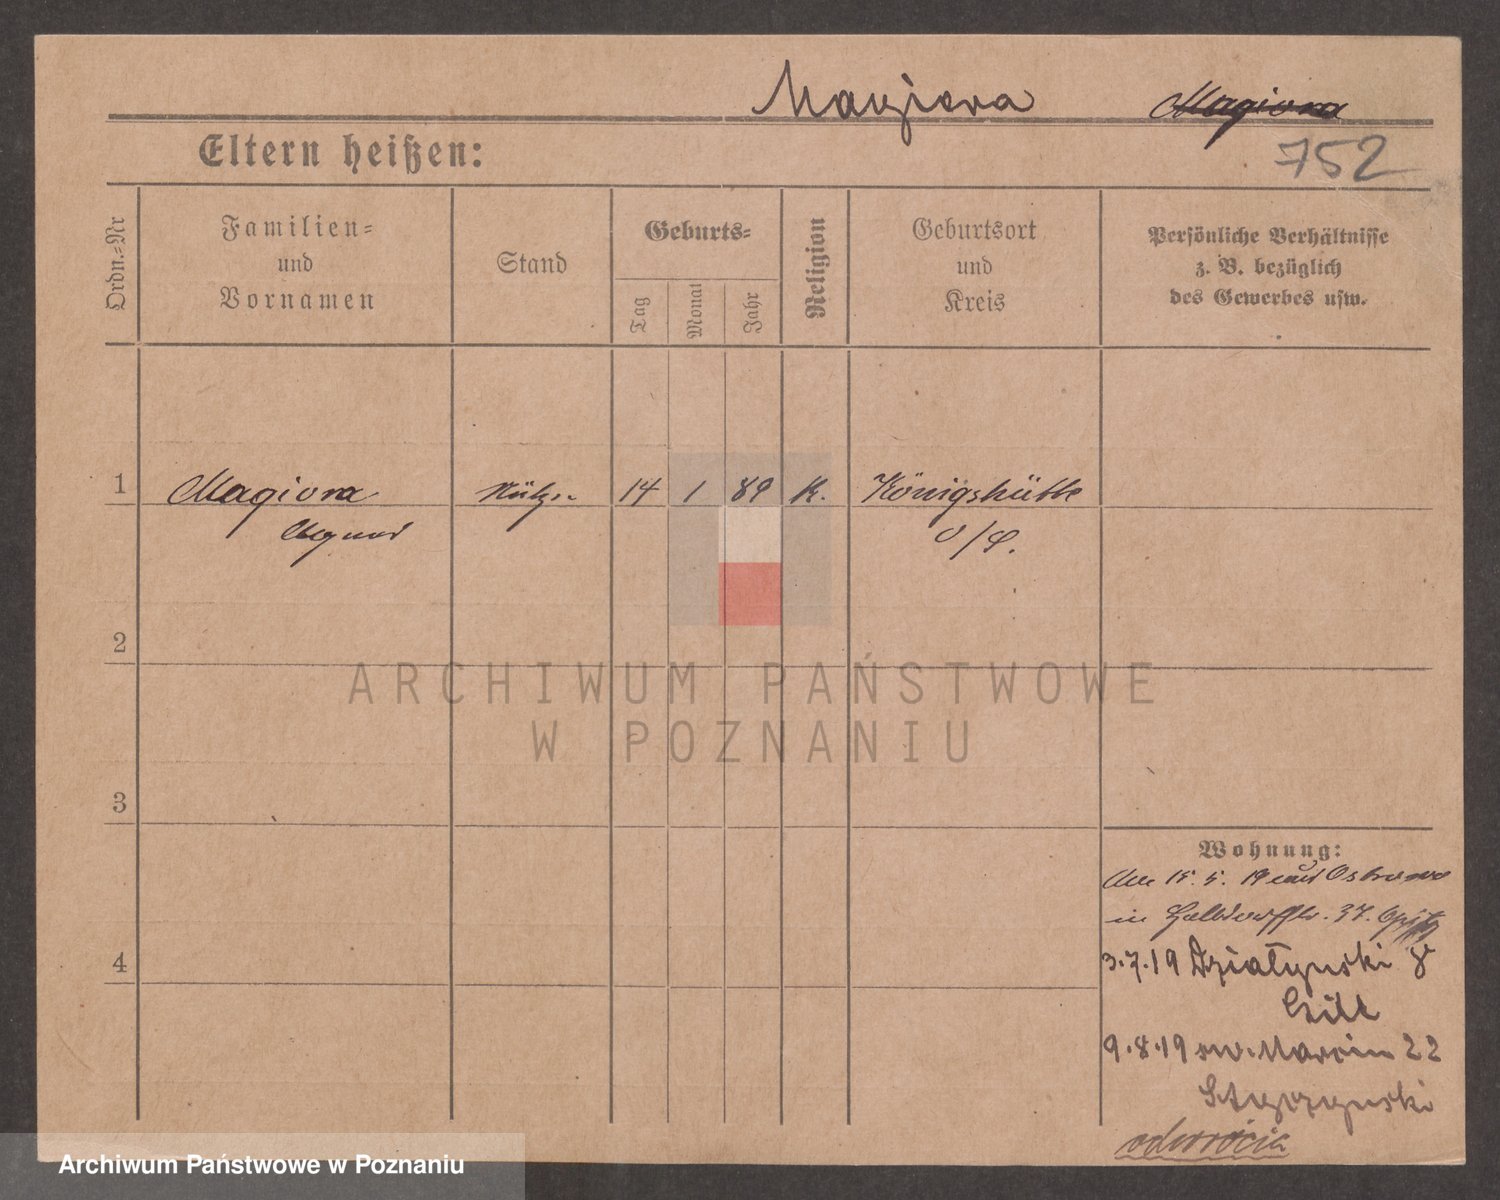 Magiera Magiera
752
Eltern heißen:
Ordn.-Nr
Familien-
und
Vornamen
Stand
Geburts-
Tag
Monat
Jahr
Religion
Geburtsort
und
Kreis
Persönliche Verhältnisse
z. B. bezüglich
des Gewerbes usw.
1 Magiera 14 1 89 K. Königshütte
O/S.
2
3
4
Wohnung:
15. 5. 19 aus Ostrowo
in 37. Opitz
3.7.19 Działyński 8
9.8.19 św. Marcin 22
odwrócić
ARCHIWUM PAŃSTWOWE
W POZNANIU
Archiwum Państwowe w Poznaniu